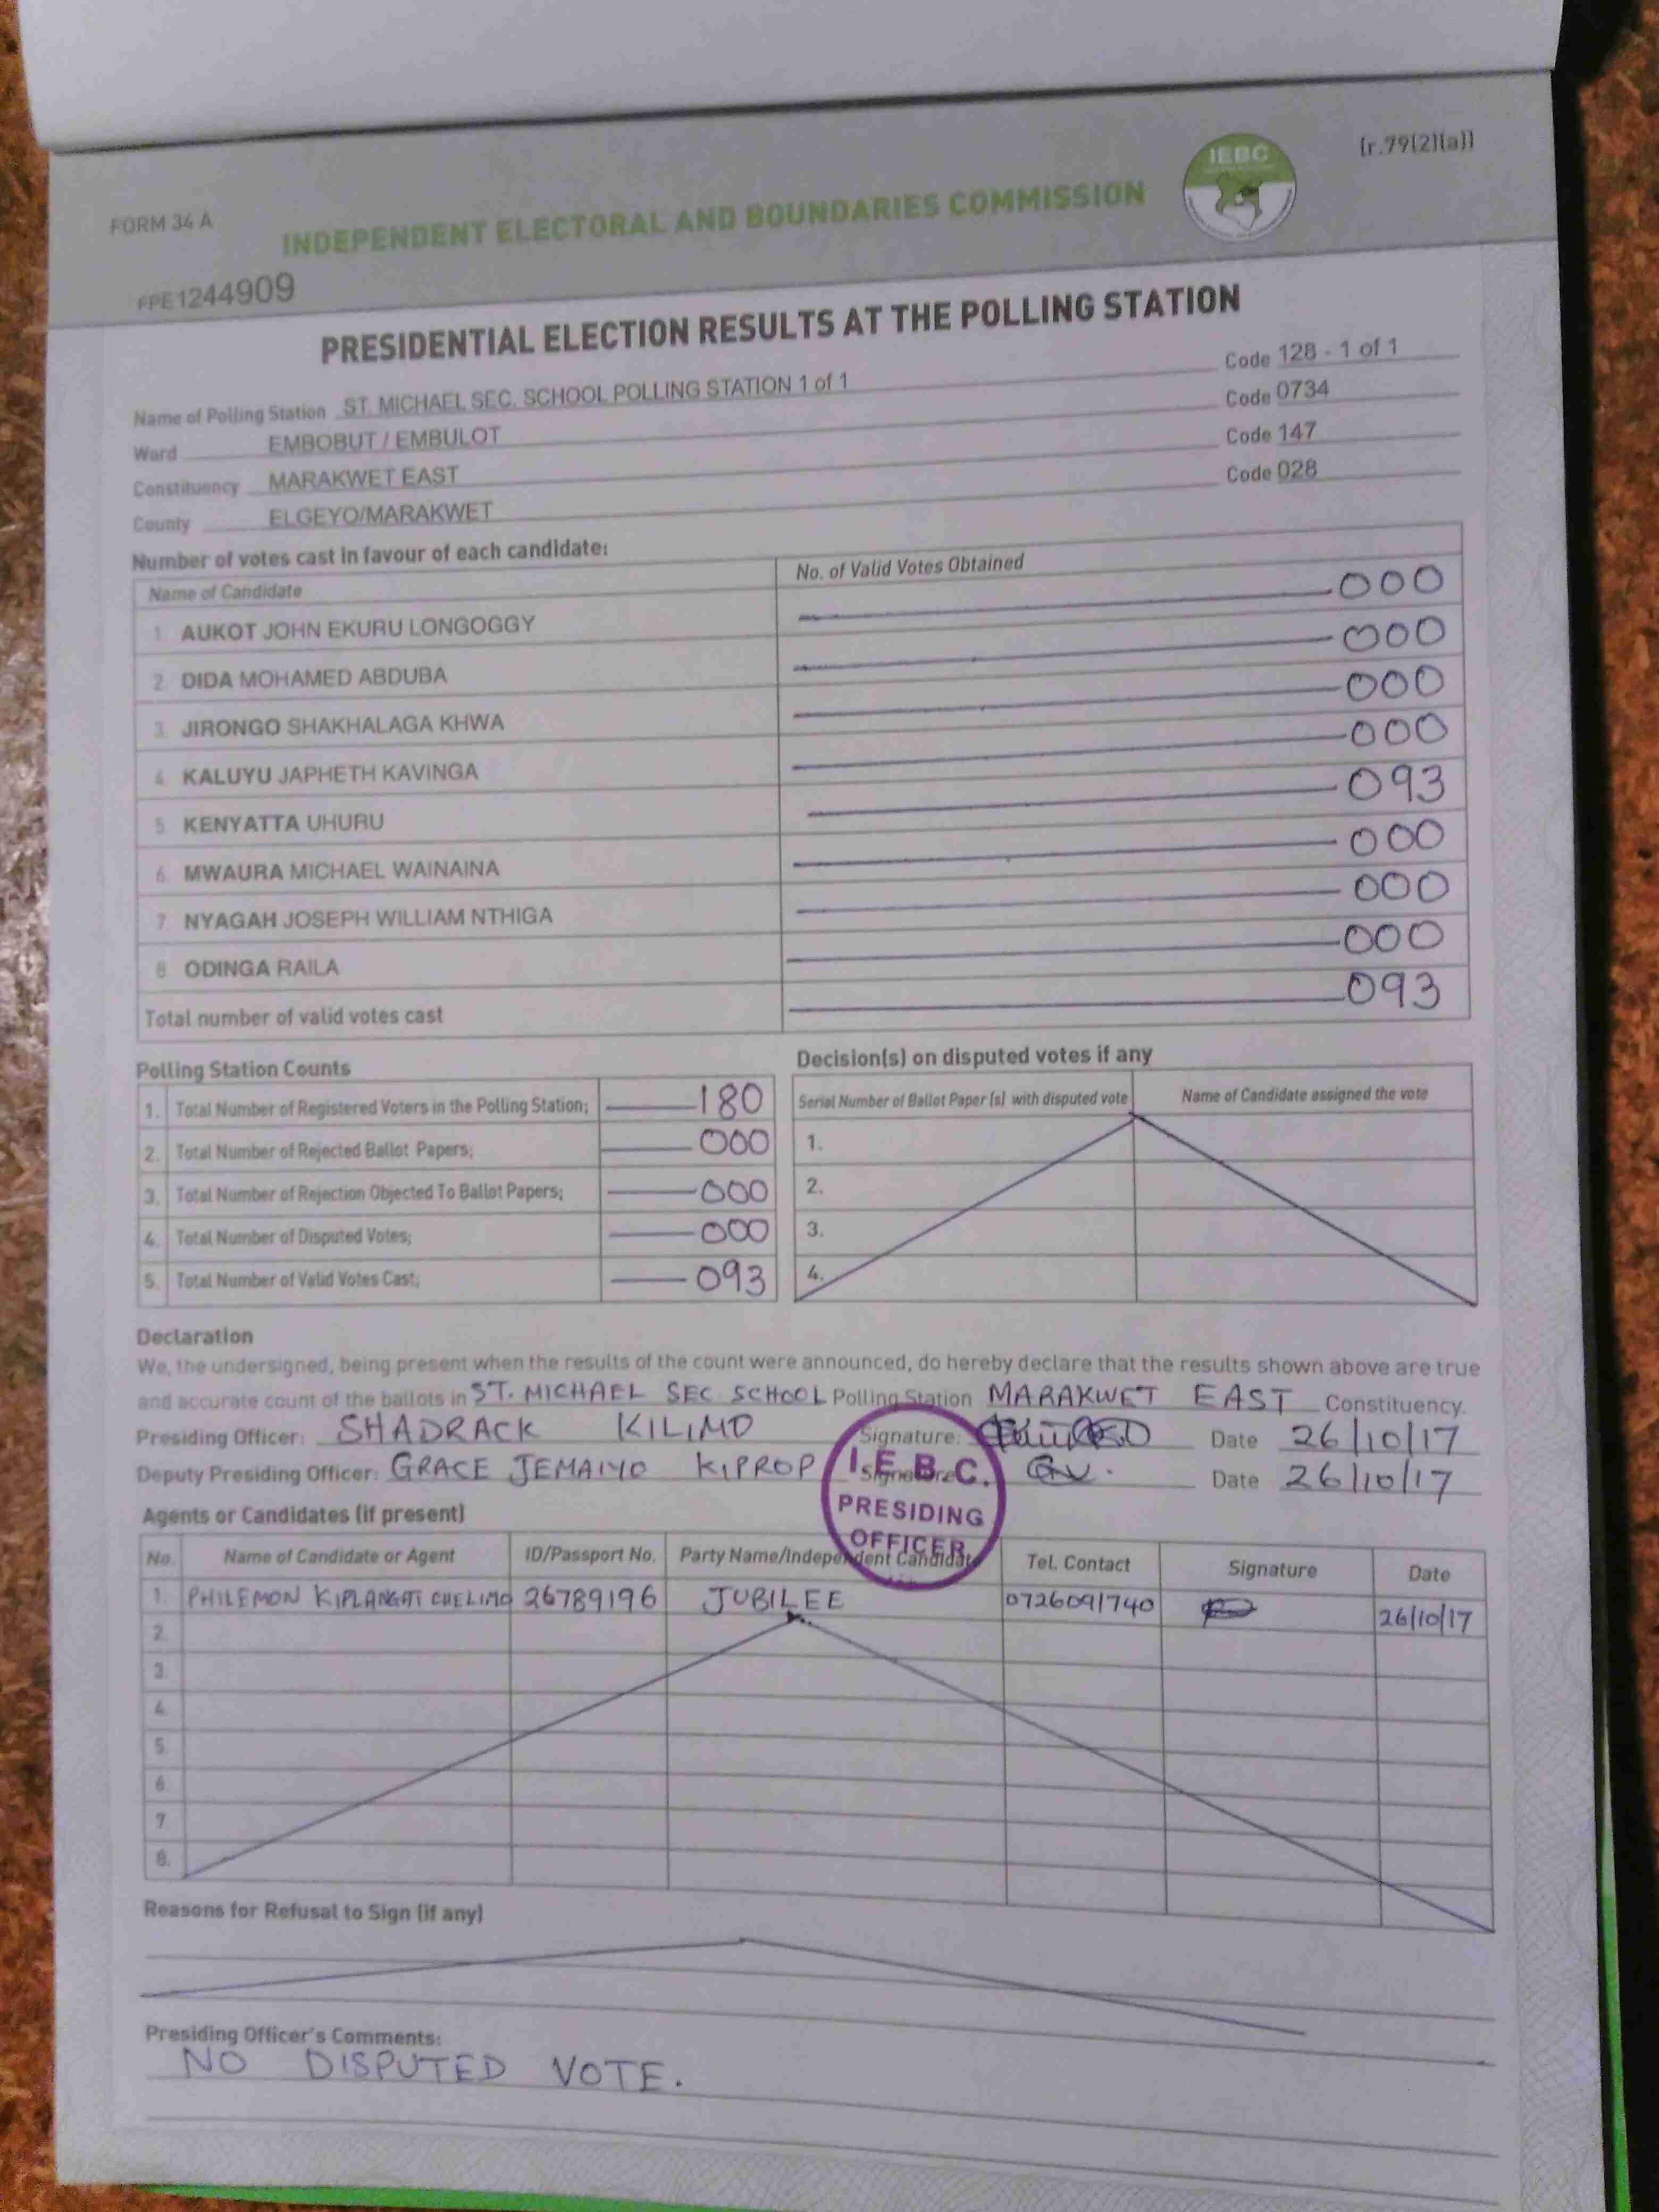 (r.79(2)(a))
IEBC
FORM 34 A
INDEPENDENT ELECTORAL AND BOUNDARIES COMMISSION
FPE1244909
PRESIDENTIAL ELECTION RESULTS AT THE POLLING STATION
Name of Polling Station ST. MICHAEL SEC. SCHOOL POLLING STATION 1 of 1 Code 128 - 1 of 1
Ward EMBOBUT / EMBULOT Code 0734
Constituency MARAKWET EAST Code 147
County ELGEYO/MARAKWET Code 028
Number of votes cast in favour of each candidate:
Name of Candidate No. of Valid Votes Obtained
1. AUKOT JOHN EKURU LONGOGGY 000
2. DIDA MOHAMED ABDUBA 000
3. JIRONGO SHAKHALAGA KHWA 000
4. KALUYU JAPHETH KAVINGA 000
5. KENYATTA UHURU 093
6. MWAURA MICHAEL WAINAINA 000
7. NYAGAH JOSEPH WILLIAM NTHIGA 000
8. ODINGA RAILA 000
Total number of valid votes cast 093
Polling Station Counts
1. Total Number of Registered Voters in the Polling Station; 180
2. Total Number of Rejected Ballot Papers; 000
3. Total Number of Rejection Objected To Ballot Papers; 000
4. Total Number of Disputed Votes; 000
5. Total Number of Valid Votes Cast; 093
Decision(s) on disputed votes if any
Serial Number of Ballot Paper (s) with disputed vote Name of Candidate assigned the vote
1.
2.
3.
4.
Declaration
We, the undersigned, being present when the results of the count were announced, do hereby declare that the results shown above are true
and accurate count of the ballots in ST. MICHAEL SEC SCHOOL Polling Station MARAKWET EAST Constituency.
Presiding Officer: SHADRACK KILIMO Signature: Date 26/10/17
Deputy Presiding Officer: GRACE JEMAIYO KIPROP Signature: Date 26/10/17
I.E.B.C.
PRESIDING
OFFICER
Agents or Candidates (if present)
No. Name of Candidate or Agent ID/Passport No. Party Name/Independent Candidate Tel. Contact Signature Date
1. PHILEMON KIPLANGAT CHELIMO 26789196 JUBILEE 0726091740 26/10/17
2.
3.
4.
5.
6.
7.
8.
Reasons for Refusal to Sign (if any)
Presiding Officer's Comments:
NO DISPUTED VOTE.